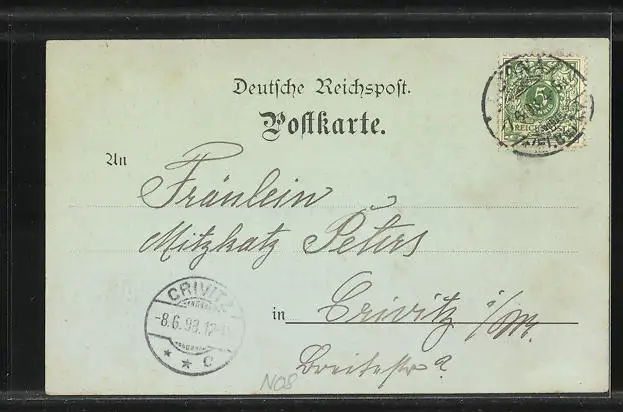 Deutsche Reichspost.
Postkarte.
An
Fräulein
Mitzkatz Peters
in Crivitz i/M.
Breitestr
5
REICHSPOST
CRIVITZ
-8.6.98.12-
* * c
N08